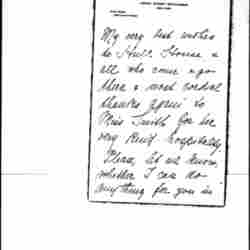 My very best wishes
to Hull House &
all who come upon
there & most cordial
thanks again to
Miss Smith for her
very kind hospitality.
Please, let me know,
whether I can do
anything for you in